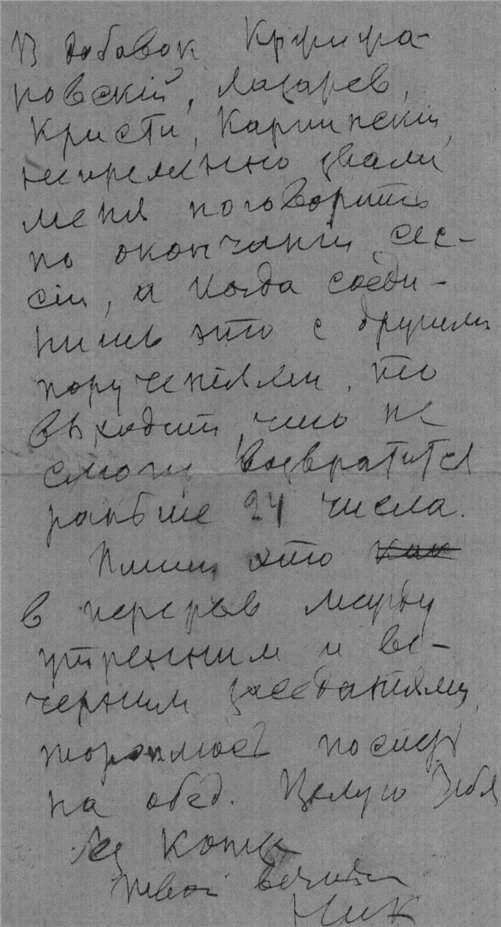 В добавок Кржижа-
новскій, Лазарев,
Кристи, Карпинскій,
непременно звали
меня поговорить
по окончаніи сес-
сіи, а когда соеди-
нишь это с другими
порученіями, то
выходит, что не
смогу возвратится
раньше 24 числа.
Пишу это как
в перерыв между
утренним и ве-
черним заседаніями,
тороплюсь поспеть
на обед. Целую Тебя
и
Твой
Ник